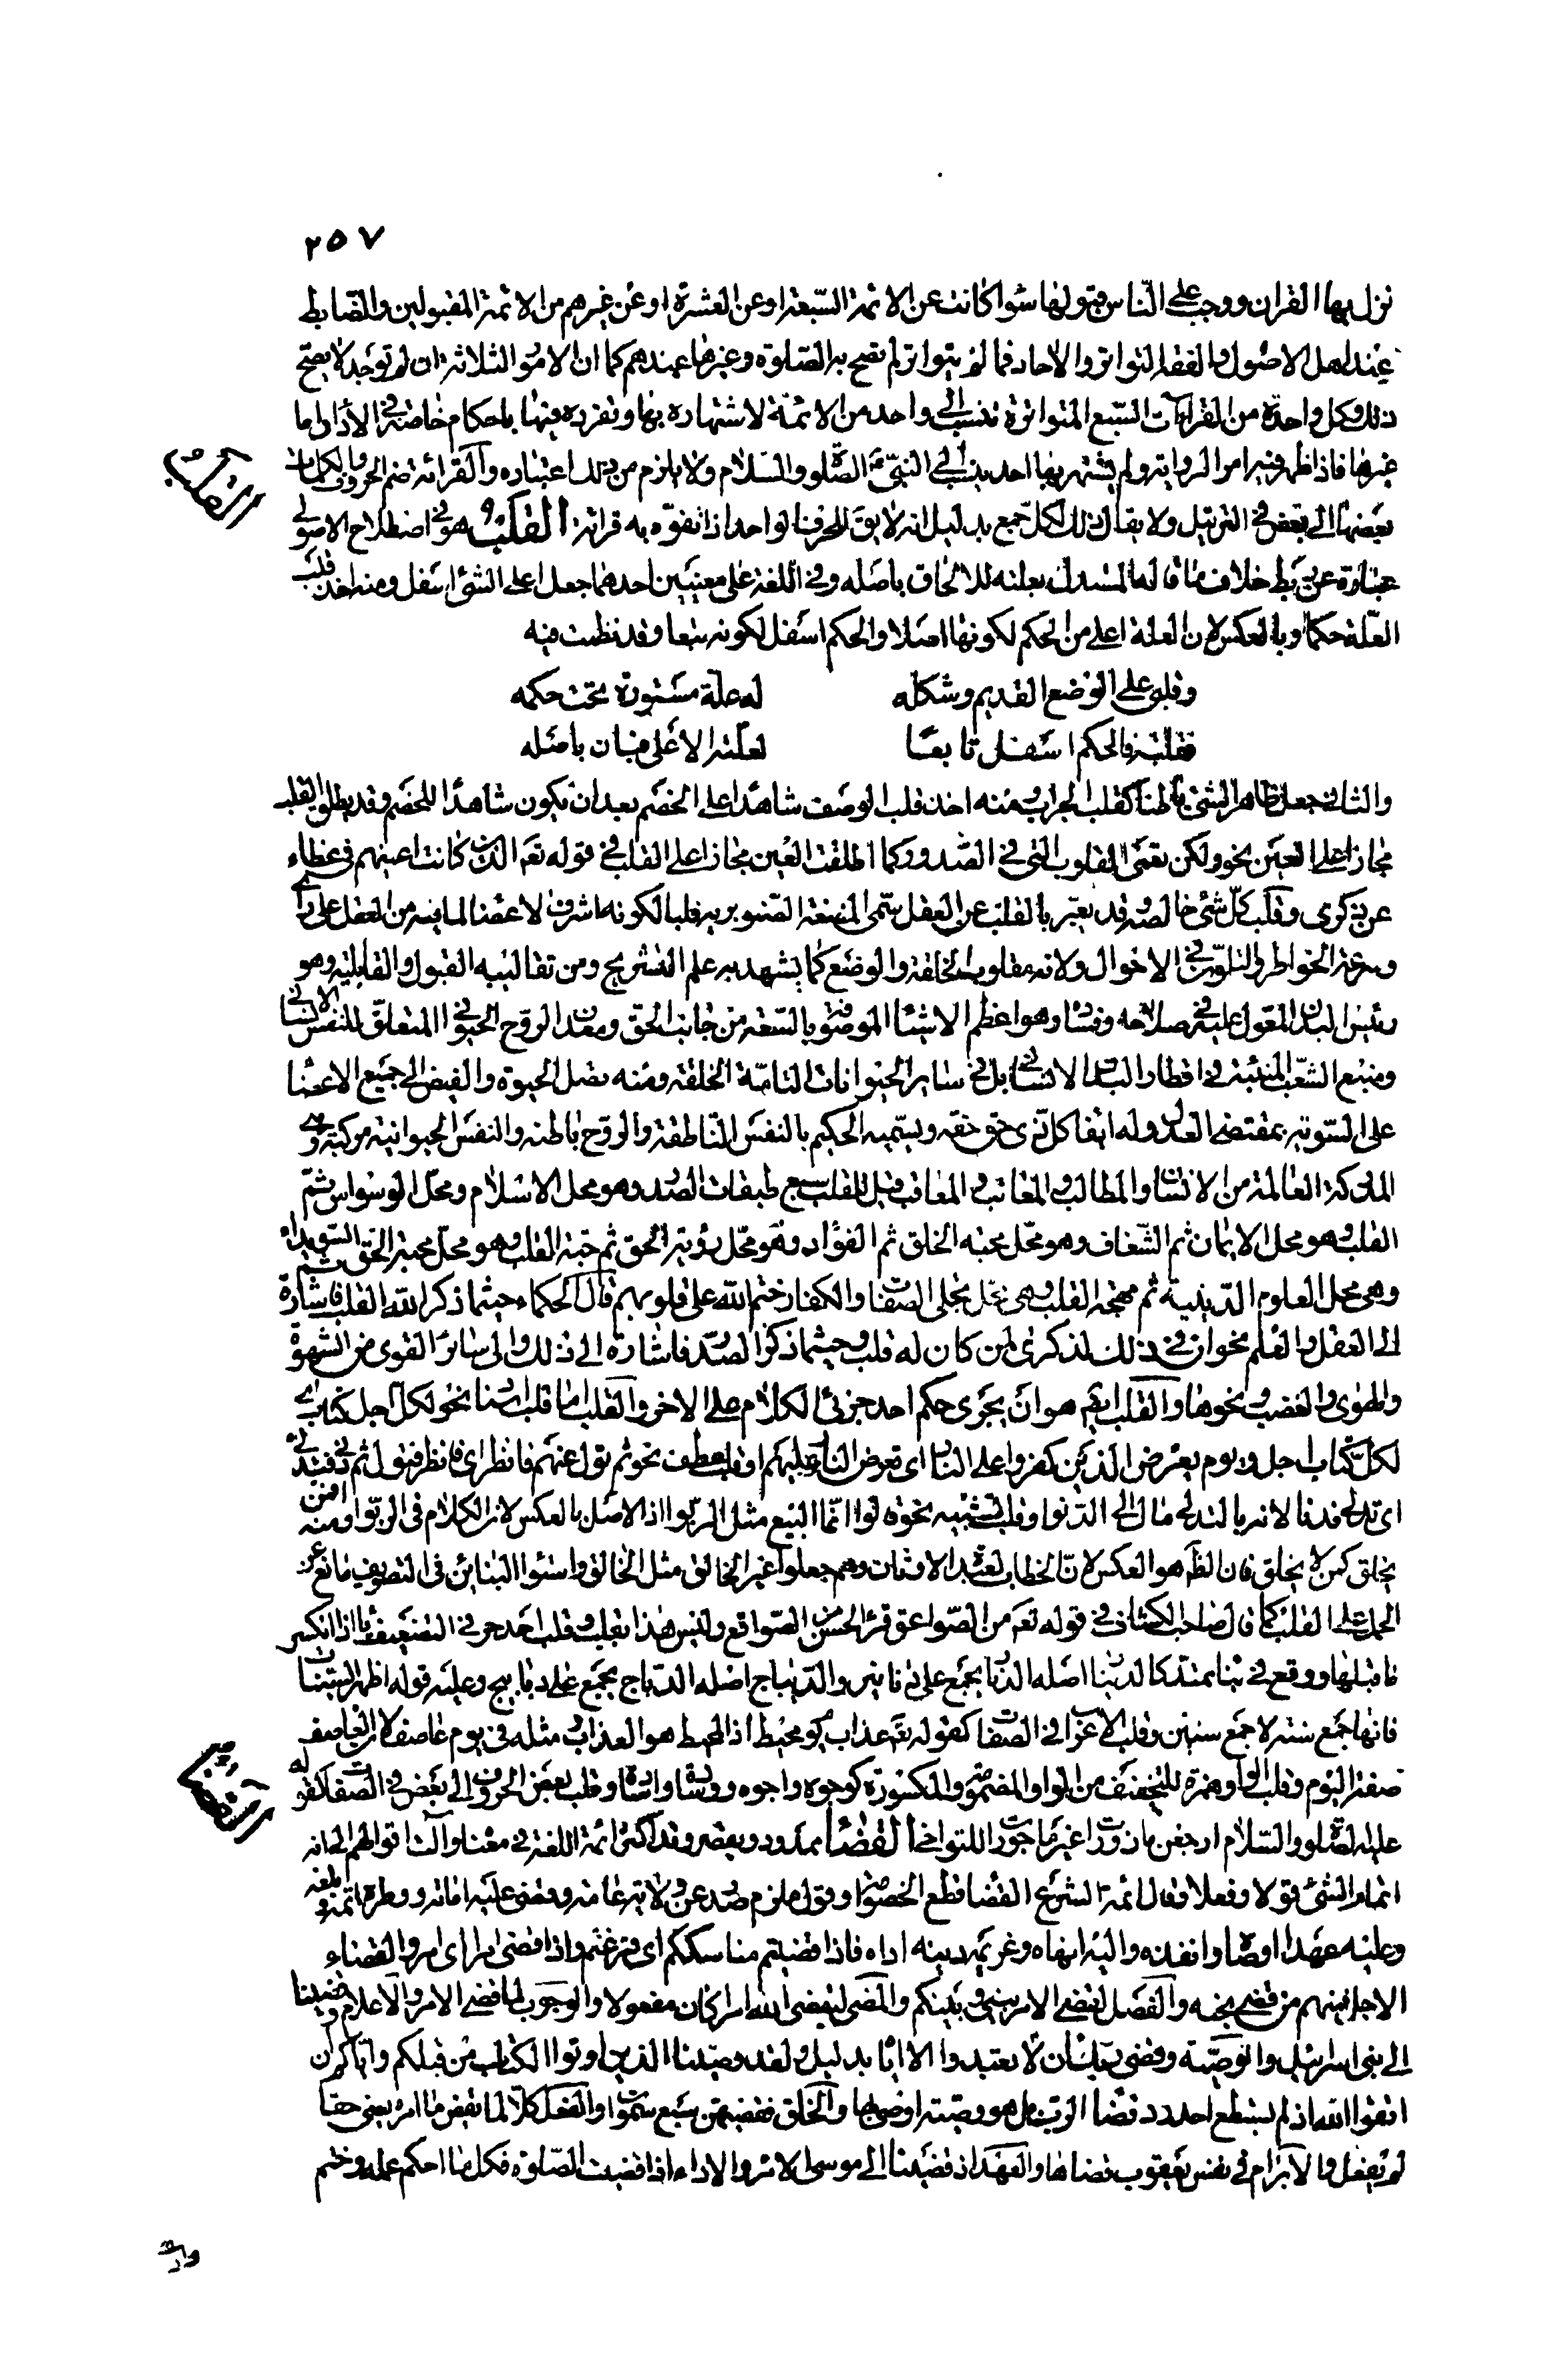 ٢٥٧
نزل بها القران ووجب على الناس قبولها سواء كانت عن الائمة السبعة او عن العشرة او عن غيرهم من الائمة المقبولين والضابط
عند اهل الاصول والفقه التواتر والاحاد فما لم يتواتر لم تصح به الصلوة وغيرها عندهم كما ان الامور الثلاثة ان لم توجد لا يصح
ذلك وكل واحدة من القراءات السبع المتواترة تنسب الى واحد من الائمة لاشتهاره بها وتفرده فيها باحكام خاصة في الأداء
غيرها فاذا ظهر فيه امر الرواية ولم يشتهر بها احد ينسب الى النبي عليه الصلوة والسلام ولا يلزم من ذلك اعتباره والقرائة ضم الحروف والكلمات
بعضها الى بعض في الترتيل ولا يقال ذلك لكل جمع بدليل انه لا يقال للحرف الواحد اذا تفوه به قرائة القلب هو في اصطلاح الاصولي
القلب
عبارة عن ربط خلاف ما قاله المستدل بعلته للالحاق باصله وفي اللغة على معنيين احدهما جعل اعلى الشئ اسفل ومنه اخذ قلب
العلة حكما وبالعكس لان العلة اعلى من الحكم لكونها اصلا والحكم اسفل لكونه تبعا وقد نظمت فيه
وقلبى على الوضع القديم وشكله له علة مستورة تحت حكمه
فقلبته فالحكم اسفل تابعا لعلته الاعلى فبان باصله
والثاني جعل ظاهر الشئ باطنا كقلب الجراب ومنه اخذ قلب الوصف شاهدا على الخصم بعد ان يكون شاهدا للخصم وقد يطلق القلب
مجازا على العين نحو ولكن تعمى القلوب التي في الصدور كما اطلقت العين مجازا على القلب في قوله تعالى الذين كانت اعينهم في غطاء
عن ذكرى وقلب كل شئ خالصه وقد يعبر بالقلب عن العقل سمى المضغة الصنوبرية قلبا لكونه اشرف الاعضا لما فيه من العقل على رأى
وسرعة الخواطر والتلوين في الاحوال ولانه مقلوب الخلقة والوضع كما يشهد به علم التشريح ومن تقاليبه القبول والقابلية وهو
رئيس البدن المعول عليه في صلاحه وفساده وهو اعظم الاشياء الموصوفة بالسعة من جانب الحق ومعدن الروح الحيواني المتعلق للنفس الانساني
ومنبع الشعب المنبثة في اقطار البدن الانساني بل في سائر الحيوانات التامة الخلقة ومنه يصل الحيوة والفيض الى جميع الاعضا
على السوية بمقتضى العدل وله ايفا كل ذي حق حقه ويسميه الحكيم بالنفس الناطقة والروح باطنه والنفس الحيوانية مركبه وهي
المدركة العالمة من الانسان والمطالب والمعاتب والمعاقب قيل للقلب سبع طبقات الصدر وهو محل الاسلام ومحل الوسواس ثم
القلب وهو محل الايمان ثم الشغاف وهو محل محبة الخلق ثم الفؤاد وهو محل رؤية الحق ثم حبة القلب وهو محل محبة الحق ثم السويداء
وهي محل العلوم الدينية ثم مهجة القلب وهي محل تجلى الصفات والكفار ختم الله على قلوبهم قال الحكماء حيثما ذكر الله القلب فاشارة
الى العقل والعلم نحو ان في ذلك لذكرى لمن كان له قلب وحيثما ذكر الصدر فاشارة الى ذلك والى سائر القوى من الشهوة
والهوى والغضب ونحوها والقلب ايضا هو ان يجرى حكم احد جزئى الكلام على الاخر والقلب اما قلب اسناد نحو لكل اجل كتاب اي
لكل كتاب اجل ويوم يعرض الذين كفروا على النار اى تعرض النار عليهم او قلب عطف نحو ثم تول عنهم فانظر اى فانظر فتول ثم دنى فتدلى
اى تدلى فدنا لانه بالتدلى مال الى الدنو او قلب تشبيه نحو قالوا انما البيع مثل الربوا اذ الاصل بالعكس لان الكلام في الربوا ومنه افمن
يخلق كمن لا يخلق فان الظاهر هو العكس لان الخطاب لعبدة الاوثان وهم جعلوا غير الخالق مثل الخالق
الحمل على القلب كما قال صاحب الكشاف في قوله تعالى من الصواعق قرأ الحسن من الصواقع وليس هذا بقلب وقلب احد حرفي التضعيف ياء اذا انكسر
ما قبلها ووقع في بناء ممتد كالدينار اصله الدنار يجمع على دنانير والديباج اصله الدباج يجمع على دبابيج وعليه قوله اظهر السنينا
فانها جمع سنة لا جمع سنين وقلب الاعراب في الصفات كقوله تعالى عذاب يوم محيط اذ المحيط هو العذاب مثله في يوم عاصف لان العاصف
صفة اليوم وقلب الواو همزة للتخفيف من الواو المضمومة والمكسورة كوجوه واجوه ووشاح واشاح وقلب بعض الحروف الى بعض في الصفات كقوله
عليه الصلوة والسلام ارجعن مأزورات غير مأجورات للتواخي القضاء ممدود ويقصر وقد اكثر ائمة اللغة في معناه وآلت اقوالهم الى انه
القضاء
اتمام الشئ قولا وفعلا وقال ائمة الشرع القضا قطع الخصومة او قول ملزم صدر عن ولاية عامة وقضى عليه اماته ووطره اتمه وبلغه
وعليه عهدا اوصاه وانفذه واليه انهاه وغريمه دينه اداه فاذا قضيتم مناسككم اى فرغتم واذا قضى امرا اى امر والقضاء
الاجل فمنهم من قضى نحبه والفصل لقضى الامر بينى وبينكم والمضى ليقضى الله امرا كان مفعولا والوجوب لما قضى الامر والاعلام وقضينا
الى بنى اسرائيل والوصية وقضى ربك ان لا تعبدوا الا اياه بدليل ولقد وصينا الذين اوتوا الكتاب من قبلكم واياكم ان
اتقوا الله اذ لم يستطع احد رد قضاء الرب بل هو وصية اوصى بها والخلق فقضيهن سبع سموات والفعل كلا لما يقض ما امره يعنى حقا
لم يفعل والابرام في نفس يعقوب قضاها والعهد اذ قضينا الى موسى الامر والاداء اذا قضيت الصلوة فكل ما احكم عمله وختم